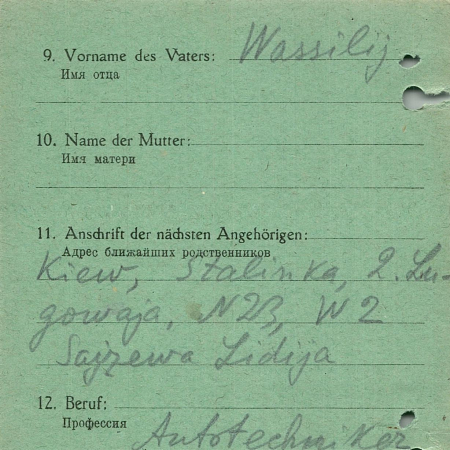 9. Vorname des Vaters: Wassilij
Имя отца
10. Name der Mutter:
Имя матери
11. Anschrift der nächsten Angehörigen:
Адрес ближайших родственников
Kiew, Stalinka, 2. Lu-
gowaja, N 23, W 2
Sajzewa Lidija
12. Beruf:
Профессия
Autotechniker